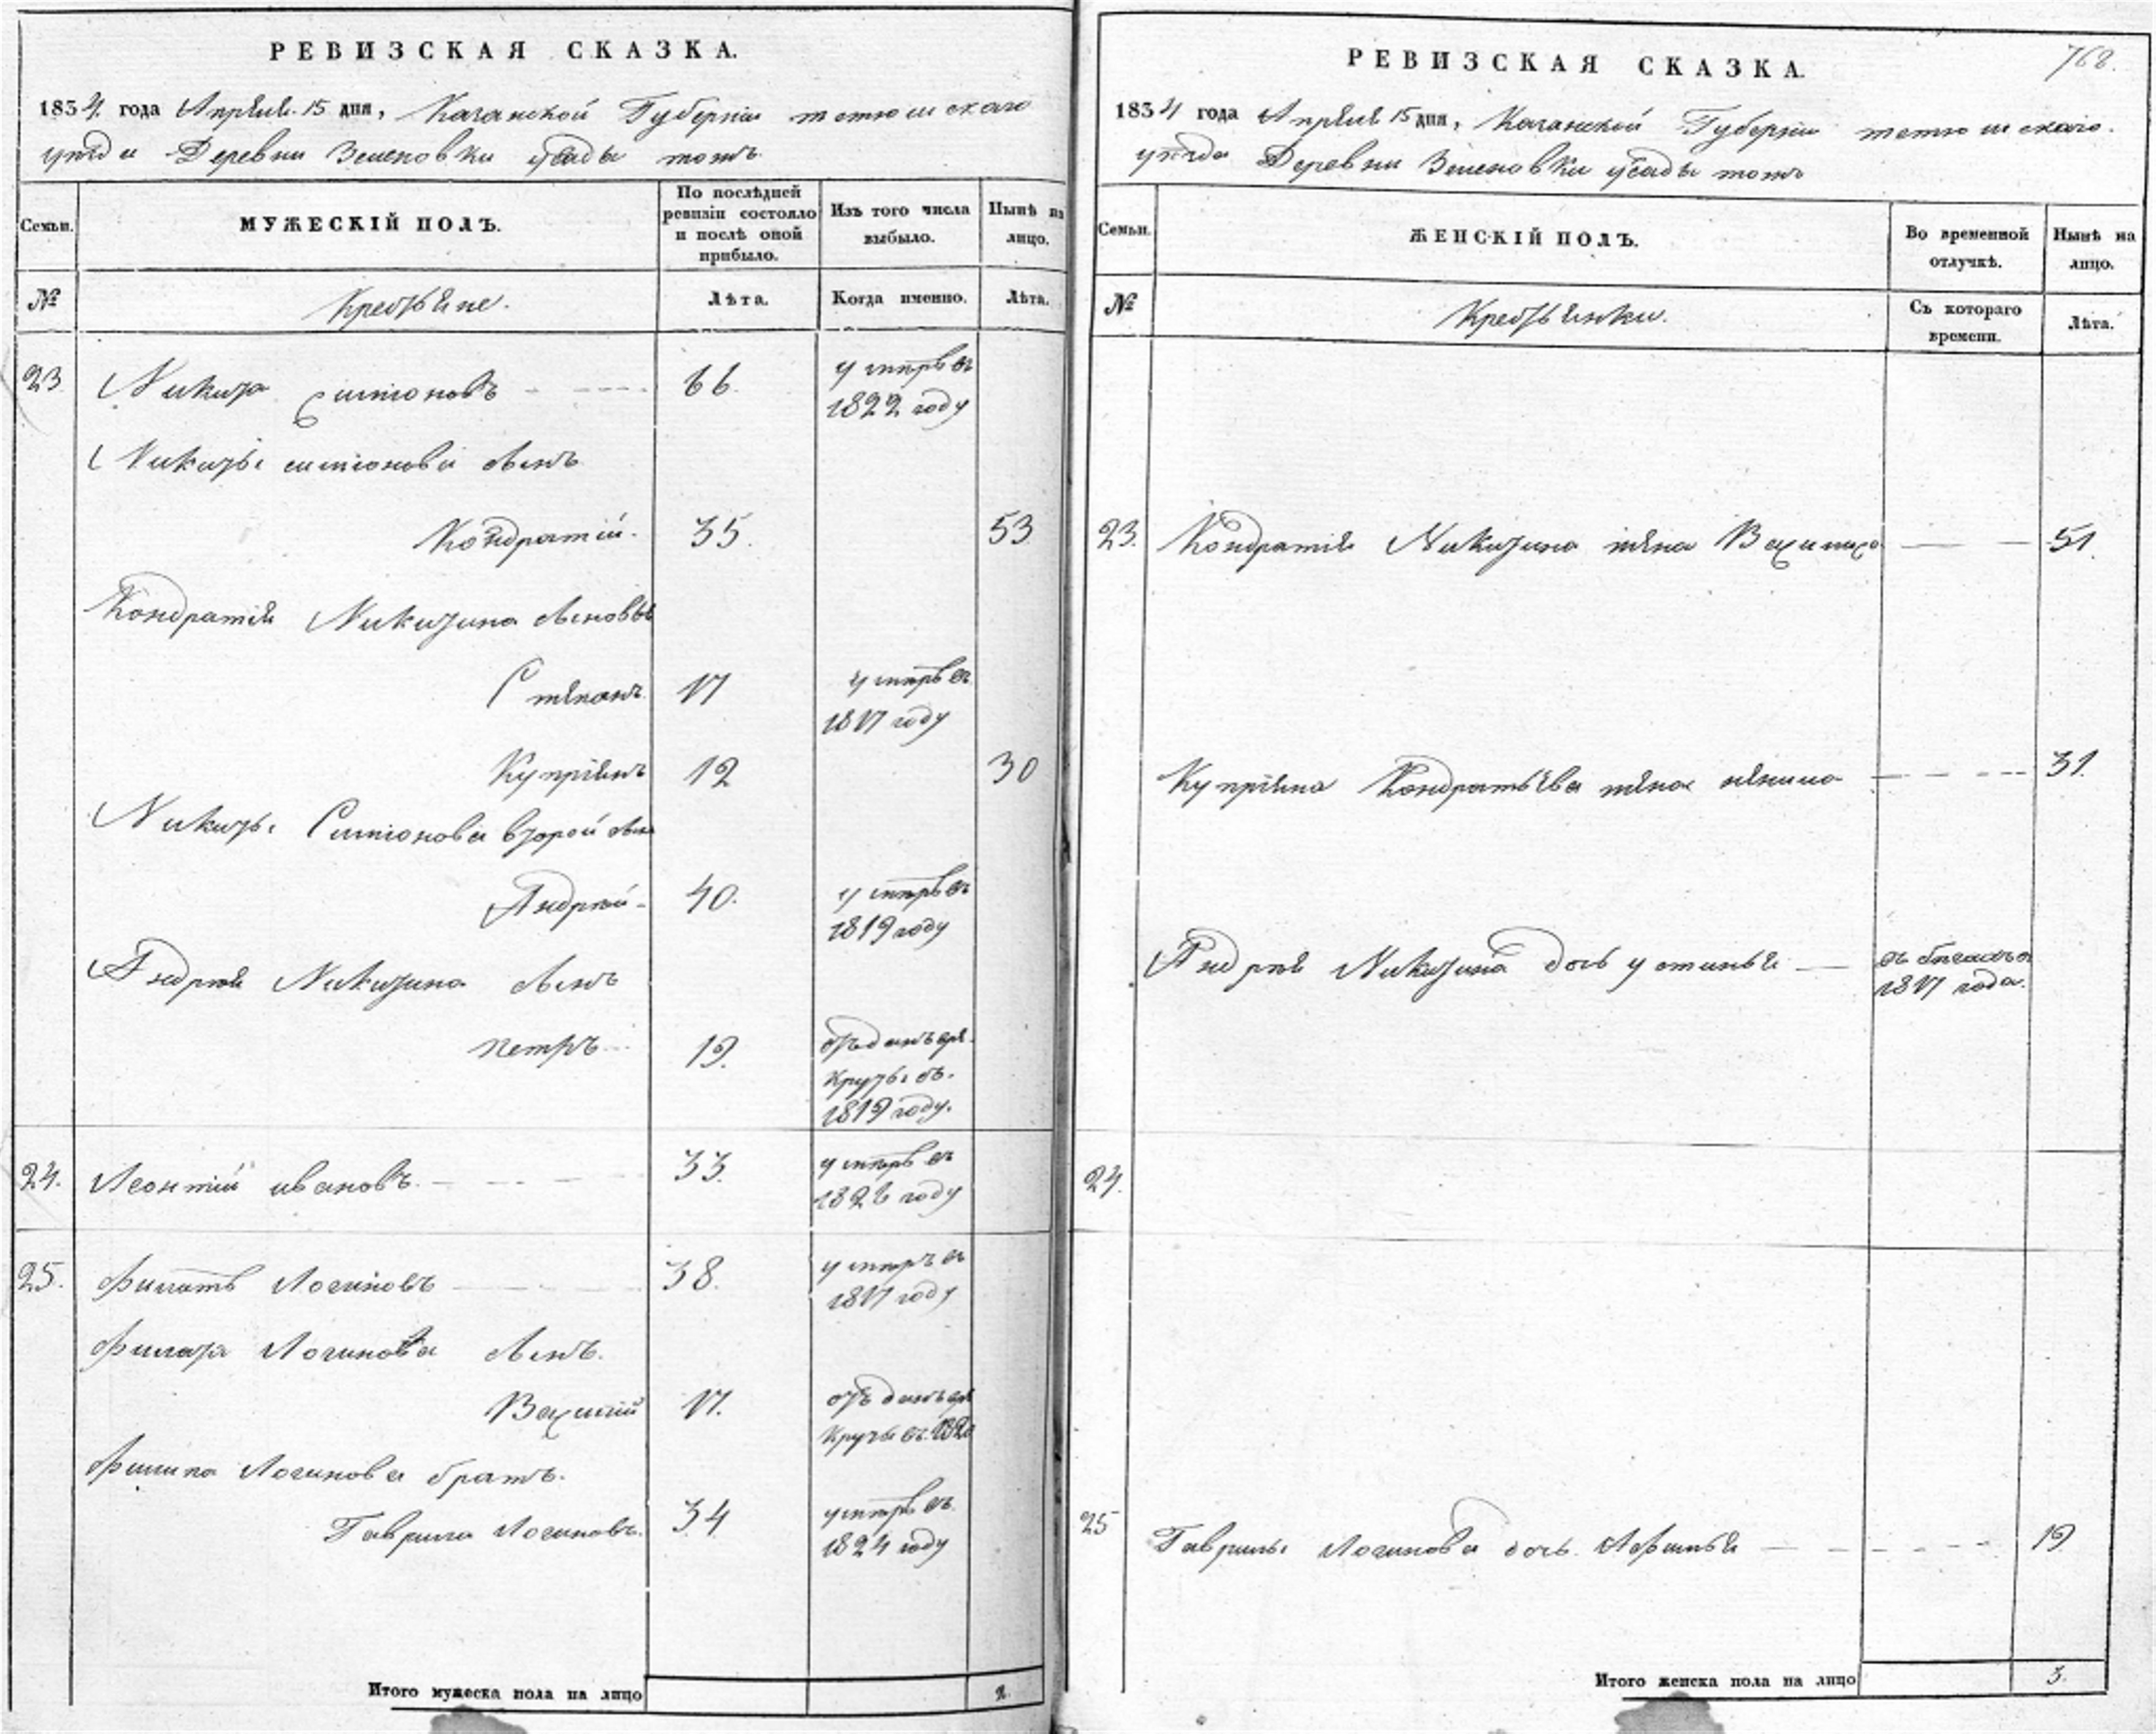 РЕВИЗСКАЯ СКАЗКА.
1834 года Апреля 15 дня, Казанской Губернии тетюшскаго
уезда Деревни Зеленовки усады тожъ
Семьи.
МУЖЕСКІЙ ПОЛЪ.
По послѣдней ревизіи состояло и послѣ оной прибыло.
Изъ того числа выбыло.
Нынѣ на лицо.
№
Крестьяне.
Лѣта.
Когда именно.
Лѣта.
23 Никита Симионовъ 66 умиръ въ
1822 году
Никиты симионова сынъ
Кондратій 35 53
Кондратія Никитина сыновья
Степанъ 17 умиръ въ
1817 году
Купріянъ 12 30
Никиты Симионова второй сынъ
Андрей 40. умиръ въ
1819 году
Андрея Никитина сынъ
петръ 19. отданъ въ
круты въ
1819 году.
24. Леонтий ивановъ 33 умиръ въ
1826 году
25. Филатъ Логиновъ 38. умиръ въ
1817 году
Филата Логинова сынъ.
Василий 17. отданъ въ
круты въ 1820
Филипа Логинова братъ.
Гаврила Логиновъ. 34 умиръ въ
1824 году
Итого мужеска пола на лицо 2.
768.
РЕВИЗСКАЯ СКАЗКА.
1834 года Апреля 15 дня, Казанской Губернии тетюшскаго.
уезда Деревни Зеленовки усады тожъ
Семьи.
ЖЕНСКІЙ ПОЛЪ.
Во временной отлучкѣ.
Нынѣ на лицо.
№
Крестьянки.
Съ котораго времени.
Лѣта.
23. Кондратія Никитина жена Василиса 51.
Купріяна Кондратьева жена 31.
Андрея Никитина дочь устинья въ бегахъ с
1817 года.
24.
25 Гаврилы Логинова дочь 19
Итого женска пола на лицо 3.